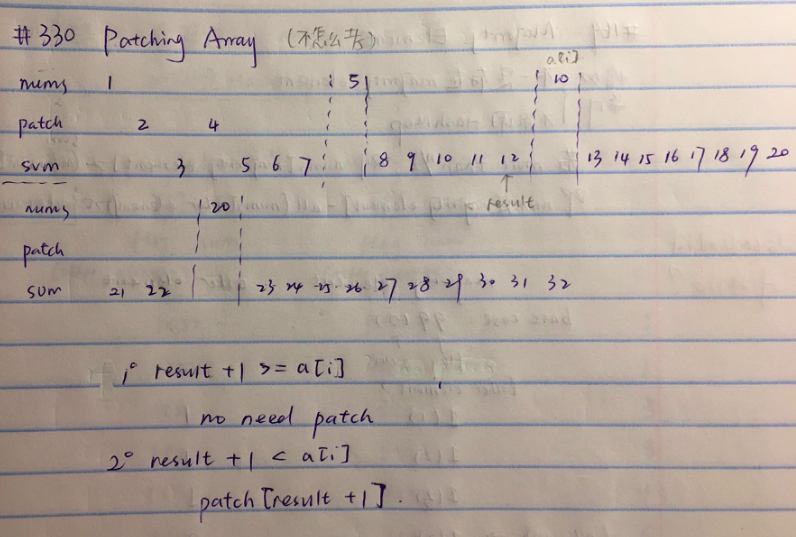 #330 Patching Array (不怎么考)
a[i]
nums 1 5 10
patch 2 4
sum 3 5 6 7 8 9 10 11 12 13 14 15 16 17 18 19 20
↑
result
nums 20
patch
sum 21 22 23 24 25 26 27 28 29 30 31 32
1° result +1 >= a[i]
no need patch
2° result +1 < a[i]
patch [result +1].